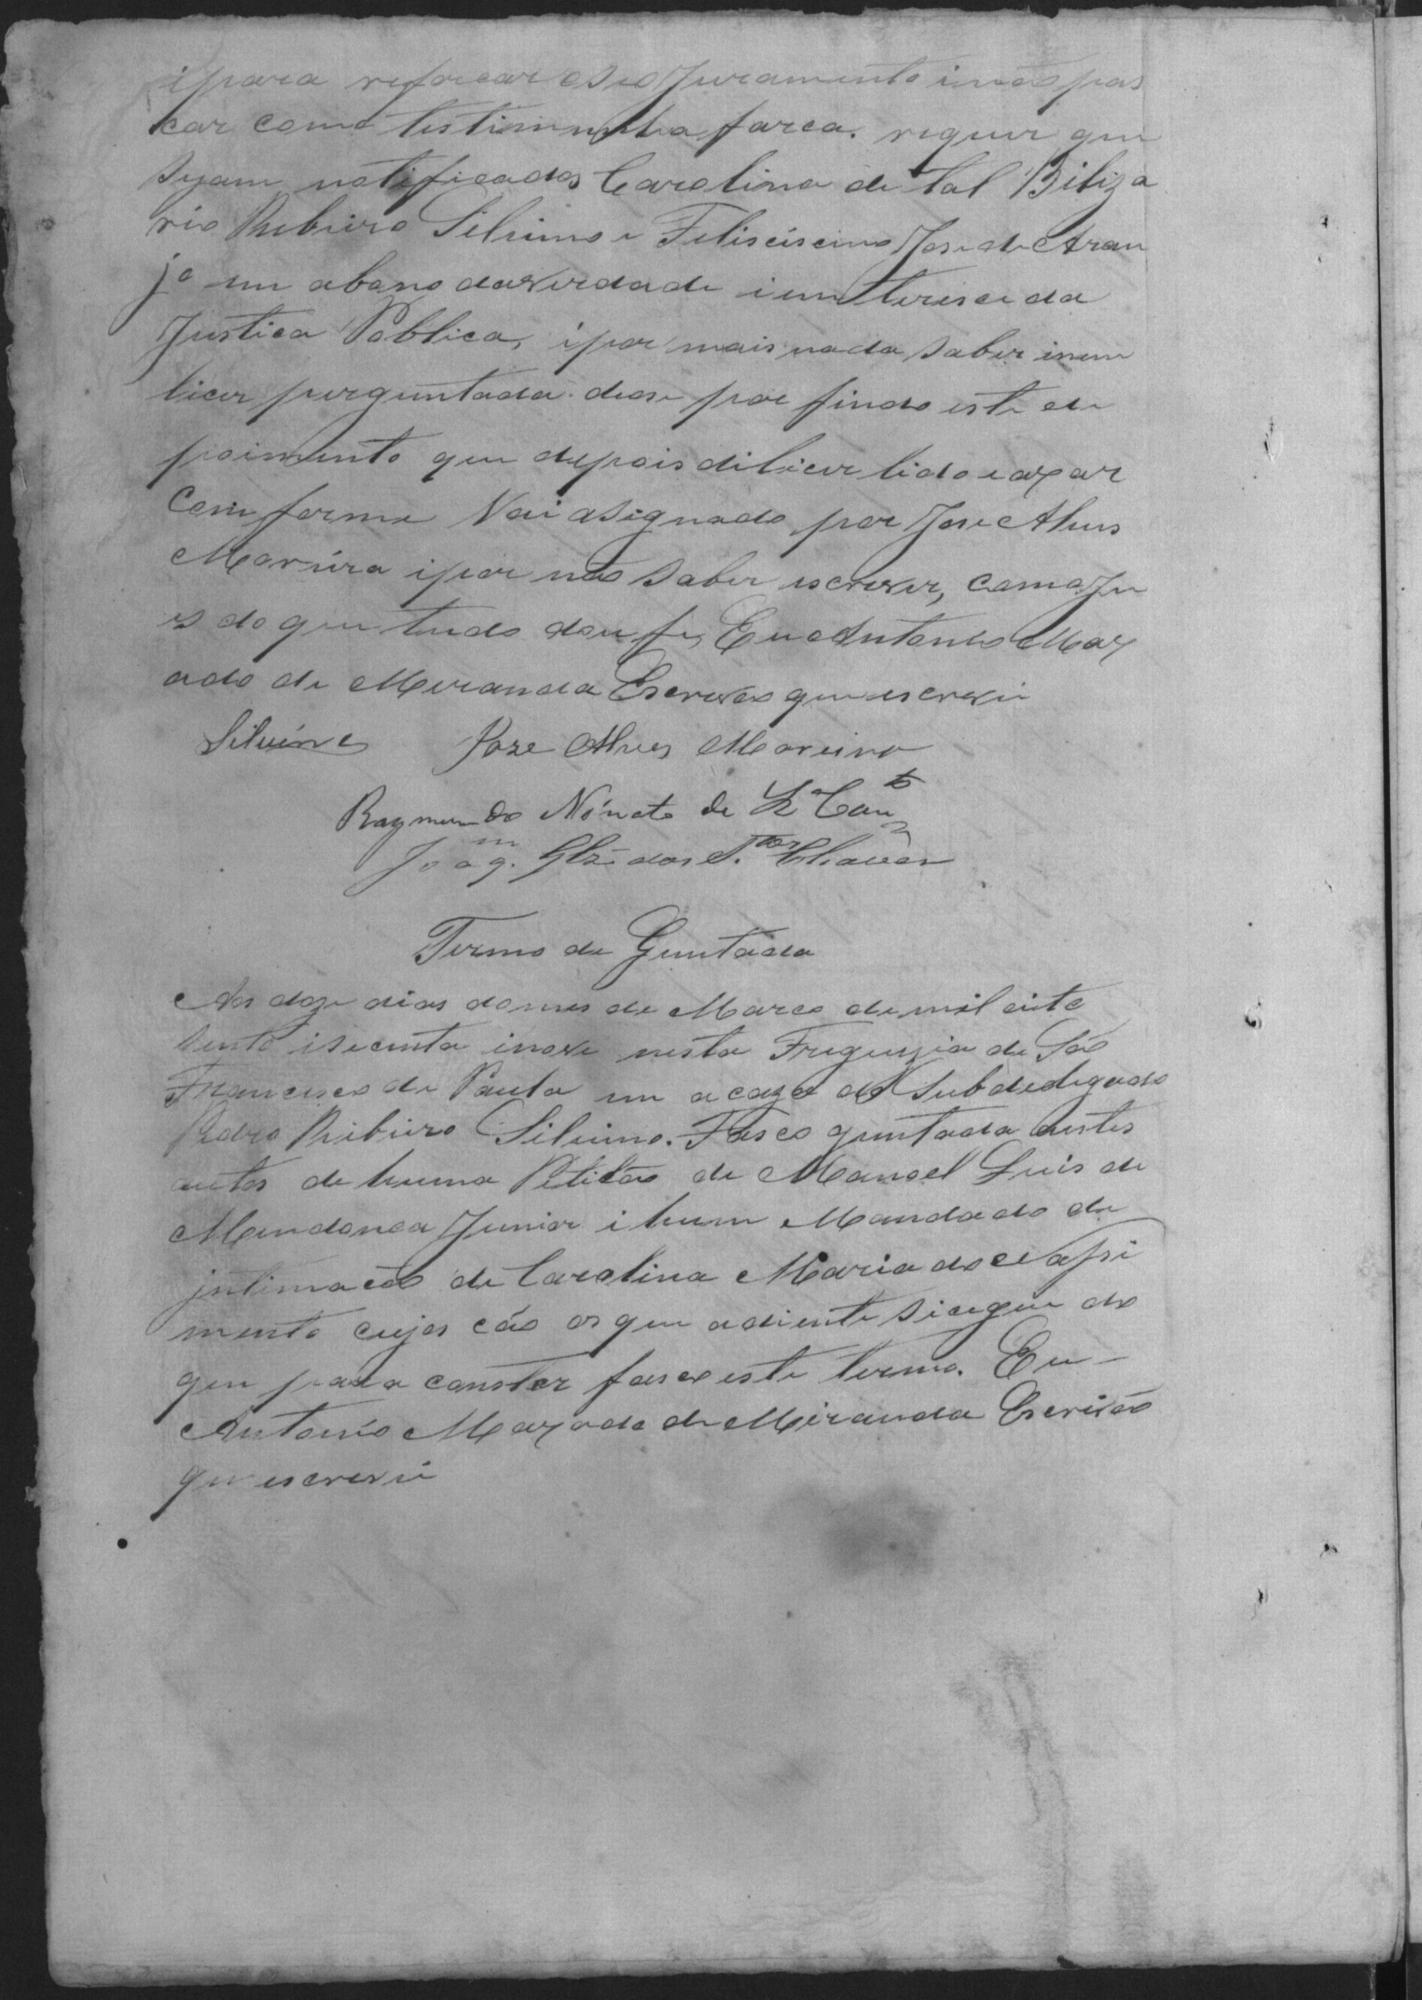 ipara reforcar oseo Juramento inão pas
car como testimunha farca. requer que
sejam notificados Carolina de tal Biliza
rio Ribeiro Silvino e Felisciscimo Jose de Arau
jo em abano daverdade iemteresce da
Justica Poblica, ipor mais nada saber inem
licer perguntada. dease por findo este de
poimento que depois dilicer lido e axar
Comforme Vai asignado por Jose Alves
Moreira ipor não saber escrever, com o Ju
is do que tudo dou fe, Eu Antonio Max
ado de Meranda Escrivão que escrevi
Silvino Joze Alves Moreira
Raymundo Nónato de
Joaqm. Glz dos S.tos Chaves
Termo de Guntada
Aos doze dias do mes de Marco de mil oito
sento isecenta inove nesta Freguezia de São
Francisco de Paula em a caza do Subdelegado
Pedro Ribeiro Silvino. Fasco guntada aestes
autos de huma Peticão de Manoel Luis de
Mendonca Junior i hum Mandado de
intimacão de Carolina Maria do
mento cujos cão os que adiente siegue do
que para constar fasco este termo. Eu
Antonio Maxado de Miranda Escrivão
que escrevi